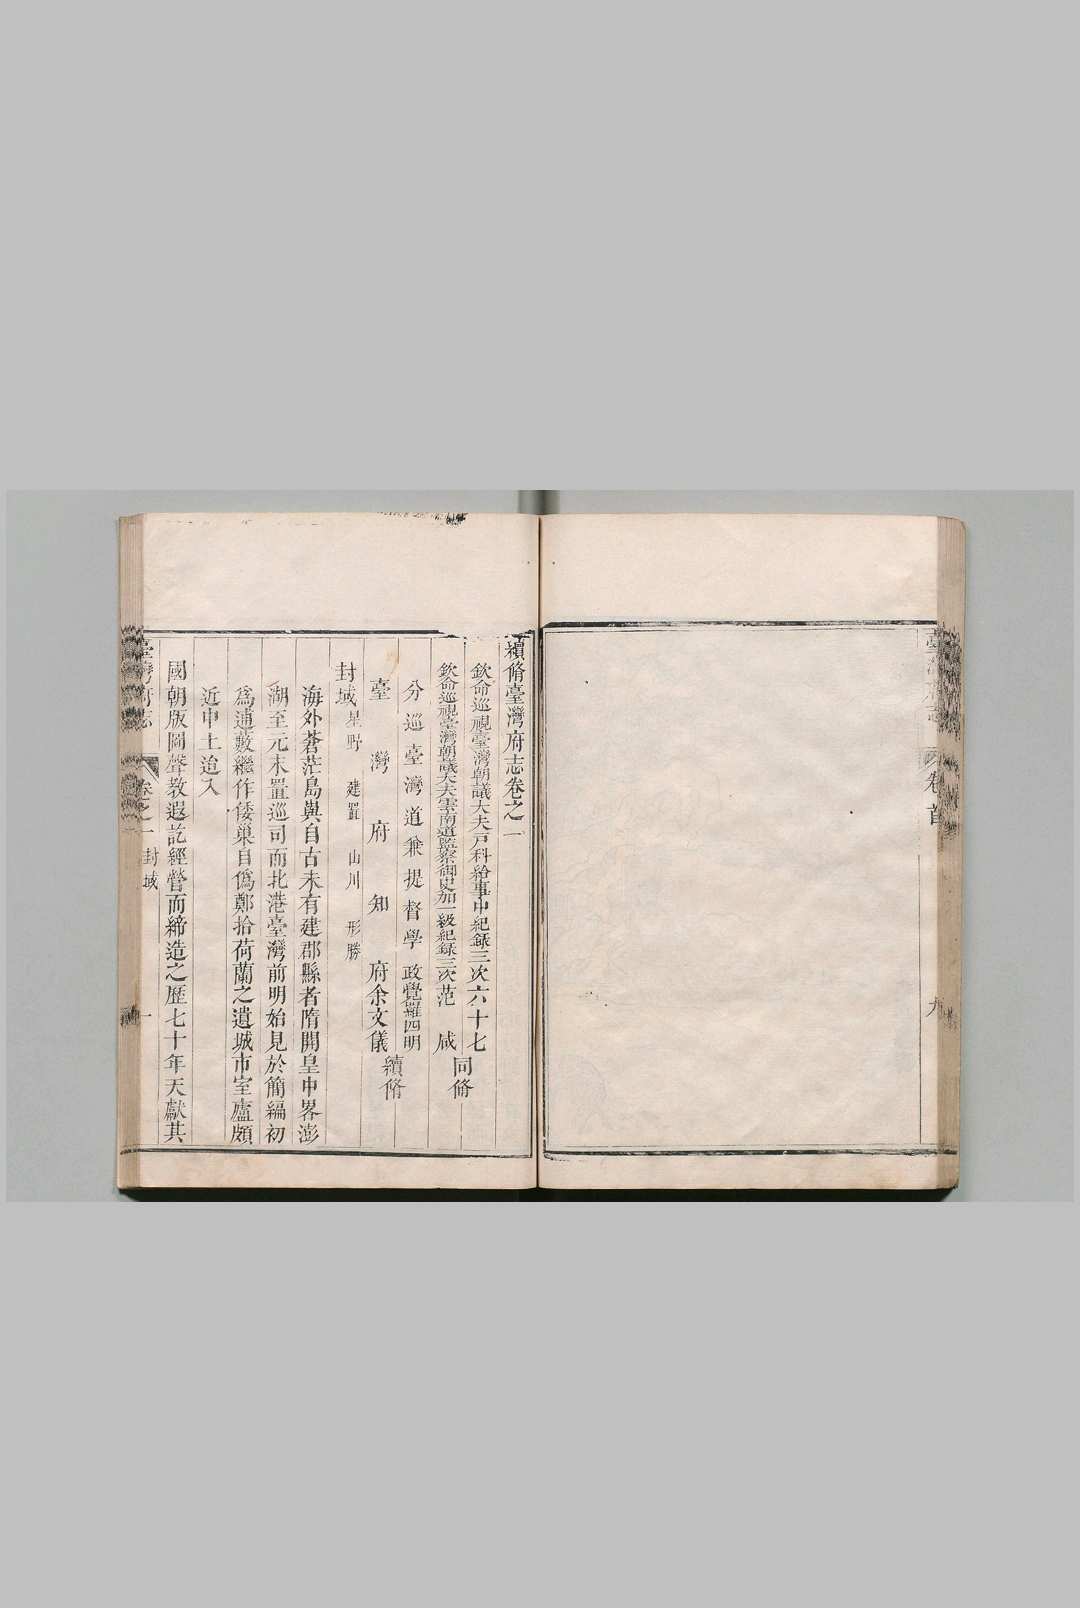 續脩臺灣府志卷之一
欽命巡視臺灣朝議大夫戶科給事中紀録三次六十七
欽命巡視臺灣朝議大夫雲南道監察御史加一級紀録三次范 咸
同脩
分巡臺灣道兼提督學政覺羅四明
臺灣府知府余文儀
續脩
封域 星野 建置 山川 形勝
海外蒼茫島與自古未有建郡縣者隋開皇中畧澎
湖至元末置巡司而北港臺灣前明始見於簡編初
爲逋藪繼作倭巢自僞鄭拾荷蘭之遺城市室廬頗
近中土迨入
國朝版圖聲教遐訖經營而締造之歷七十年天獻其
臺灣府志 卷之一 封域 一
卷首 九